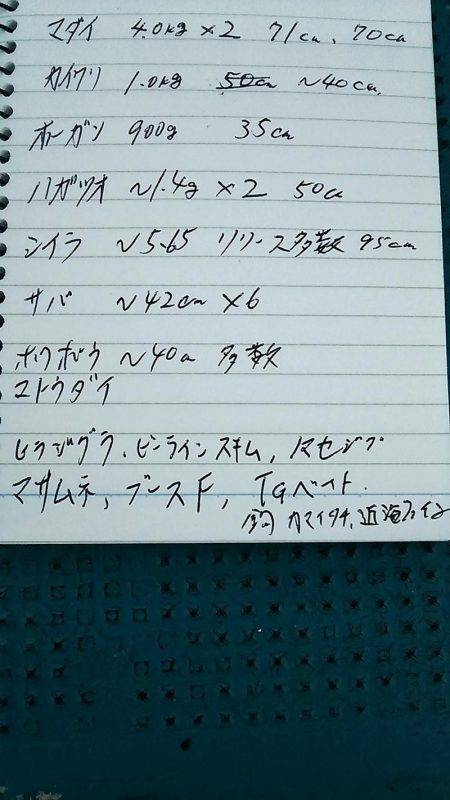 マダイ 4.0kg×2 71cm、70cm
カイワリ 1.0kg 50cm ~40cm
オオガン 900g 35cm
ハガツオ ~1.4g×2 50cm
シイラ ~5.65 リリース多数 95cm
サバ ~42cm×6
ホウボウ ~40cm 多数
マトウダイ
ヒラジグラ、ピンテール
マサムネ、ブースF、TGベイト
鉤 カマイタチ、近海